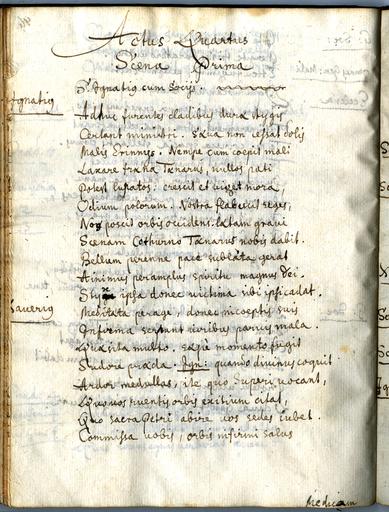 Actus Quartus
Scena Prima
S. Ignatius cum Socijs.
Ignatig
Adhuc furentes cladibus dura stygis
Certant ministri. saeva non cessat dolis
Malis Erinnys. Nempe cum coepit mali
Laxare fraena Taenarus, nullos pati
Potest cresit et viget mora,
Odium polorum. Nostra flabellis reges,
Nos poscit orbis occidens. latam gravi
Scaenam Cothurno Taenarius nobis dabit.
Bellum perenne pace sublata gerat
Animus peramplus spiritu magnus Dei.
ipsa donec victima sibi
Xaverig
Meditata perage, donec incoeptis suis
Inferna serpunt viribus parvis mala.
Quaesita multo, saepe momento fregit
Sudore praeda Ign: quando divinus coquit
Ardor medullas, ite quo Superi vocant,
Quo vos ruentis orbis exitium citat,
Quo sacra Petri abire vos sedes iubet.
Commissa vobis, orbis infirmi salus
Medicam